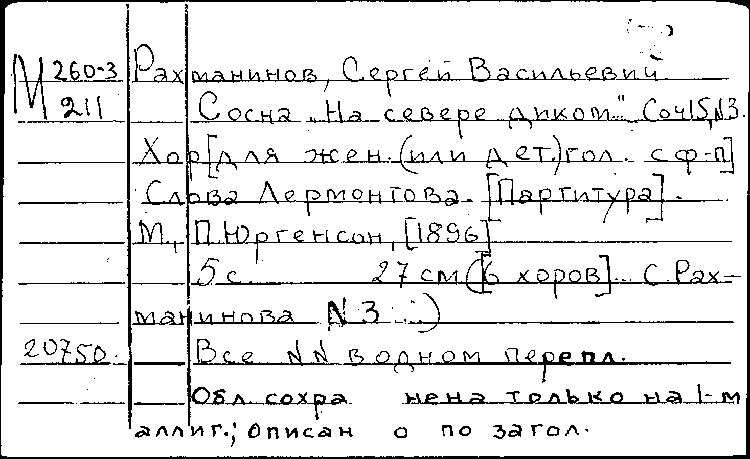 М 260-3 Рахманинов, Сергей Васильевий
211 Сосна „На севере диком". Соч15,N3.
Хор[для жен.(или дет.)гол. с ф-п]
Слова Лермонтова. [Партитура].
М., П.Юргенсон, [1896]
5 с. 27 см ([6 хоров] С Рах-
манинова N 3 ...)
20750. Все NN в одном перепл.
Обл. сохра нена только на 1-м
аллиг.; описан о по загол.